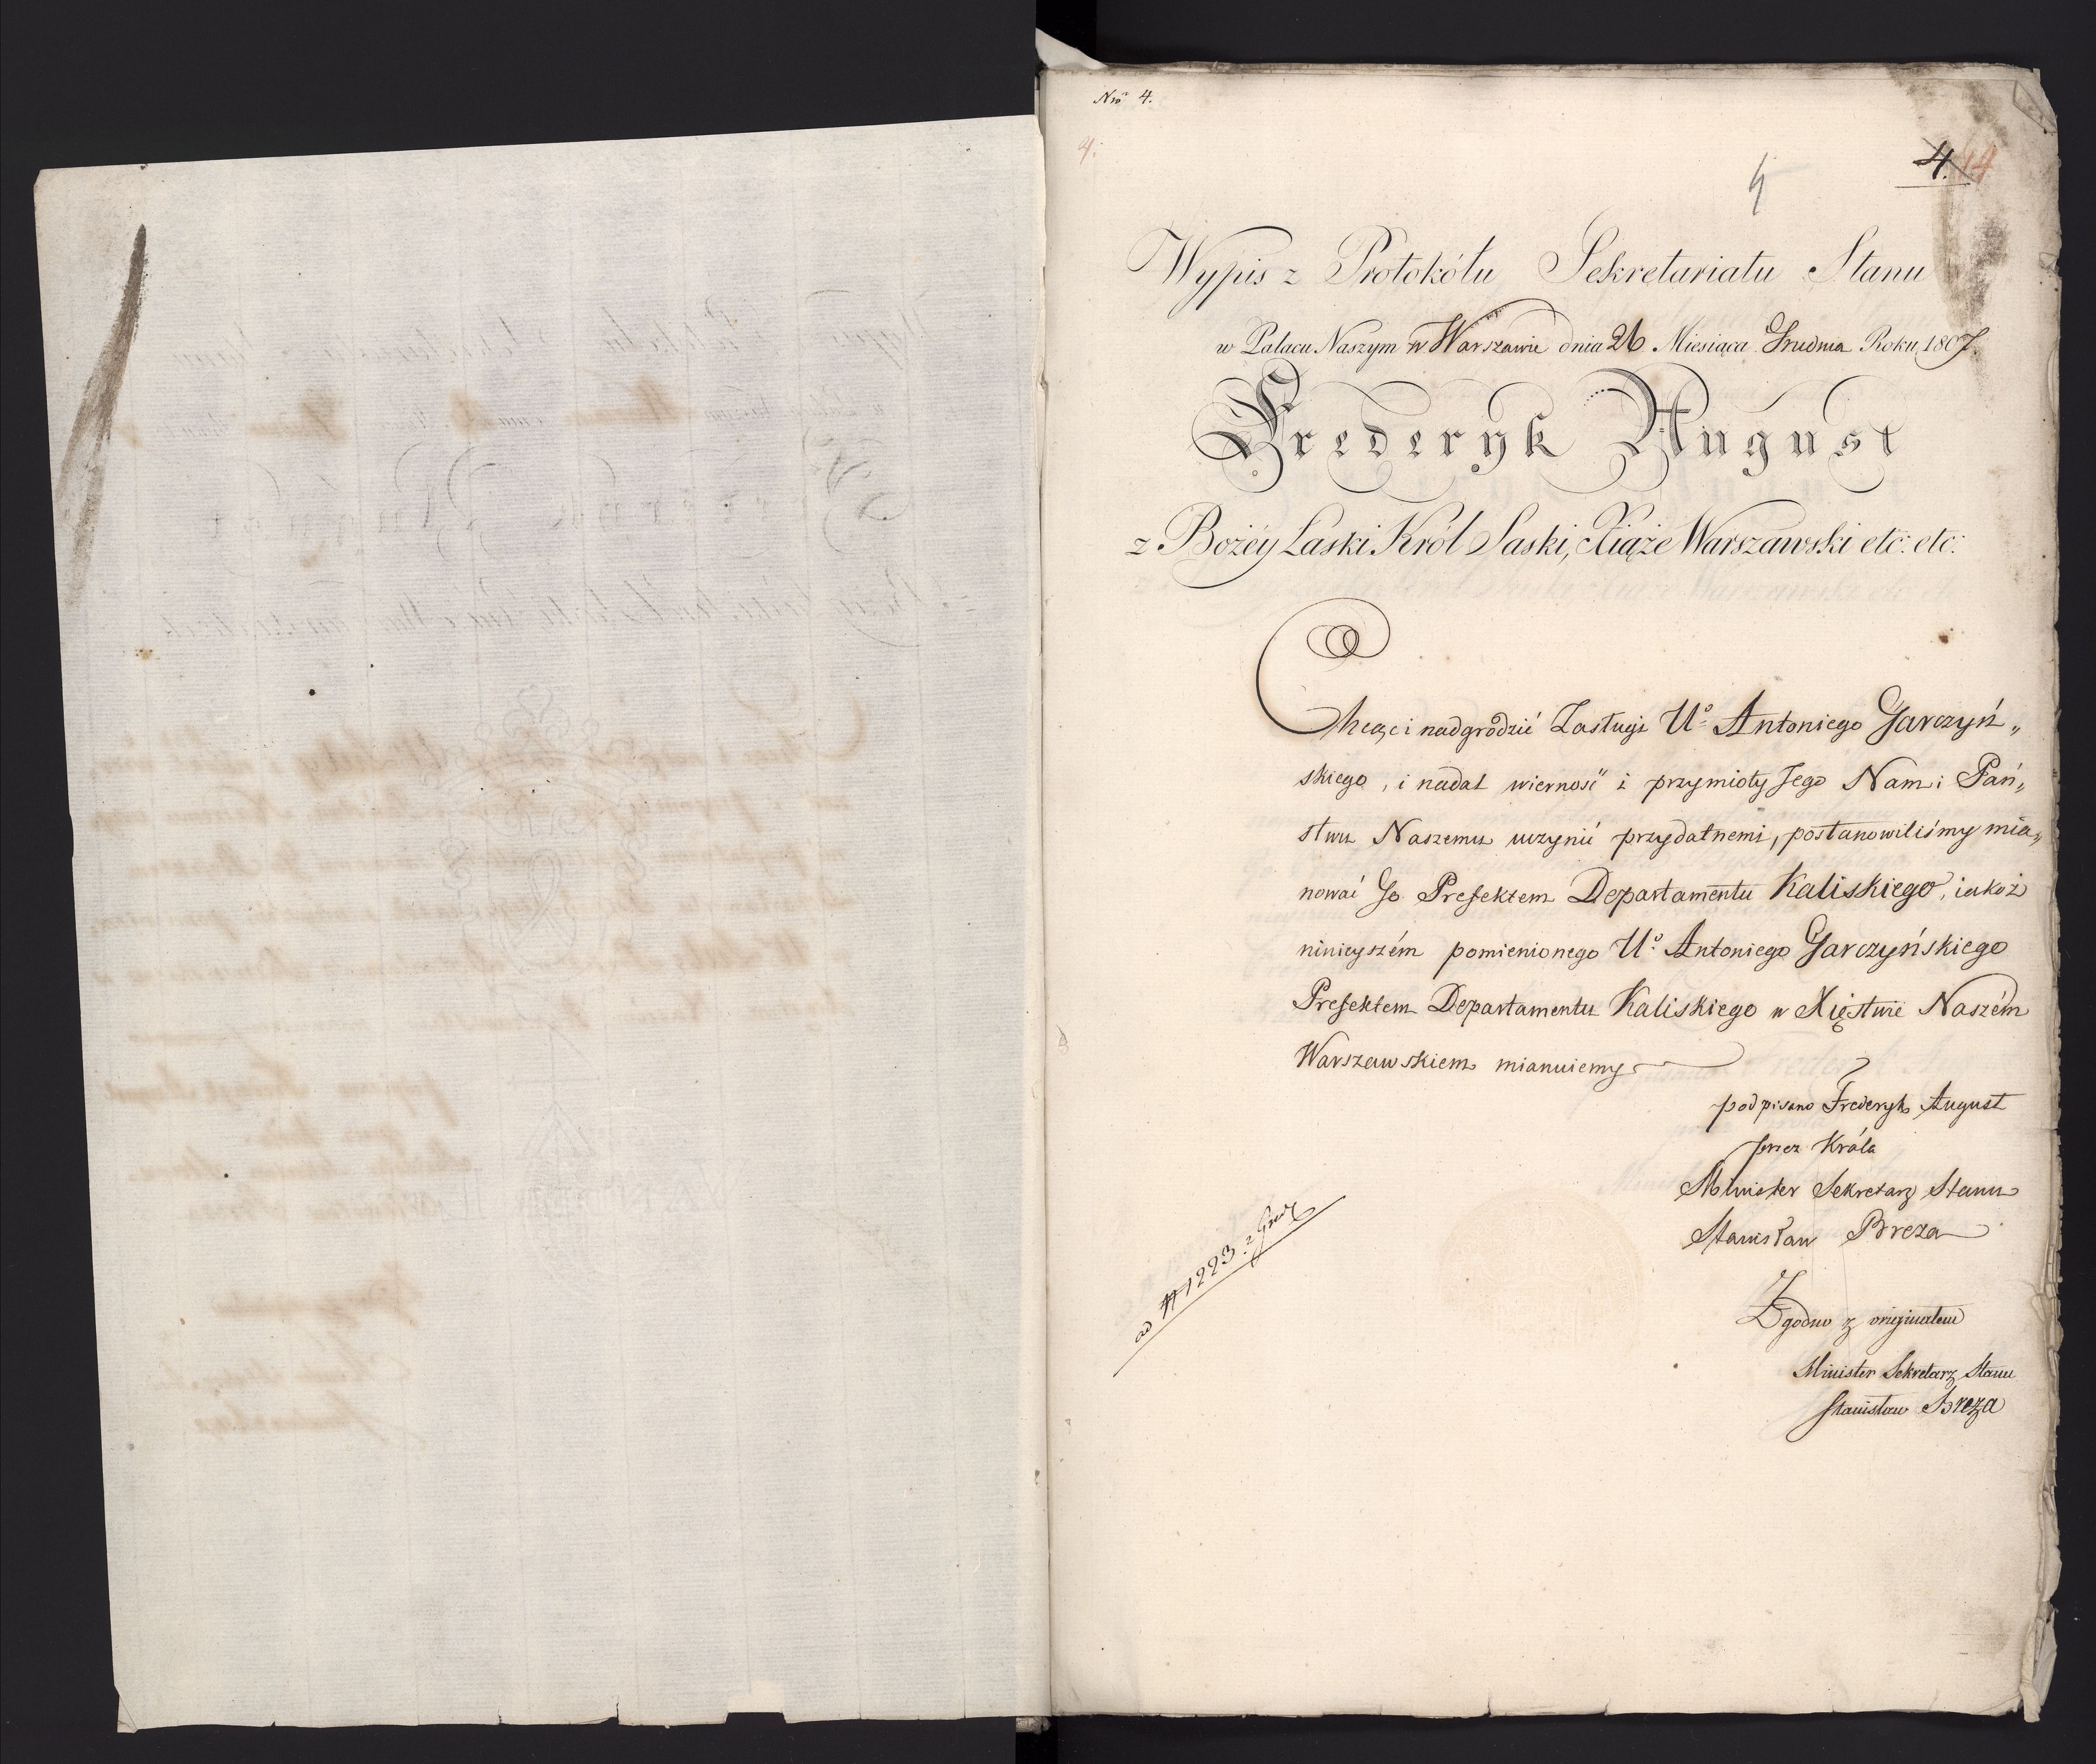 Nro 4.
4.
4
4. 14
Wypis z Protokółu Sekretariatu Stanu
w Pałacu Naszym w Warszawie dnia 26 Miesiąca Grudnia Roku 1807.
Frederyk August
z Bożéy Łaski Król Saski, Xiąże Warszawski etc: etc:
Chcąc i nadgrodzić Zasługi Uo Antoniego Garczyń„
skiego, i nadal wierność i przymioty Jego Nam i Pań„
stwu Naszemu uczynić przydatnemi, postanowiliśmy mia„
nować Go Prefektem Departamentu Kaliskiego, iakoż
ninieyszém pomienionego Uo Antoniego Garczyńskiego
Prefektem Departamentu Kaliskiego w Xięstwie Naszém
Warszawskiem mianuiemy
podpisano Frederyk August
przez Króla
Minister Sekretarz Stanu
Stanisław Breza
ad # 1223. Grud.
Zgodno z originałem
Minister Sekretarz Stanu
Stanisław Breza